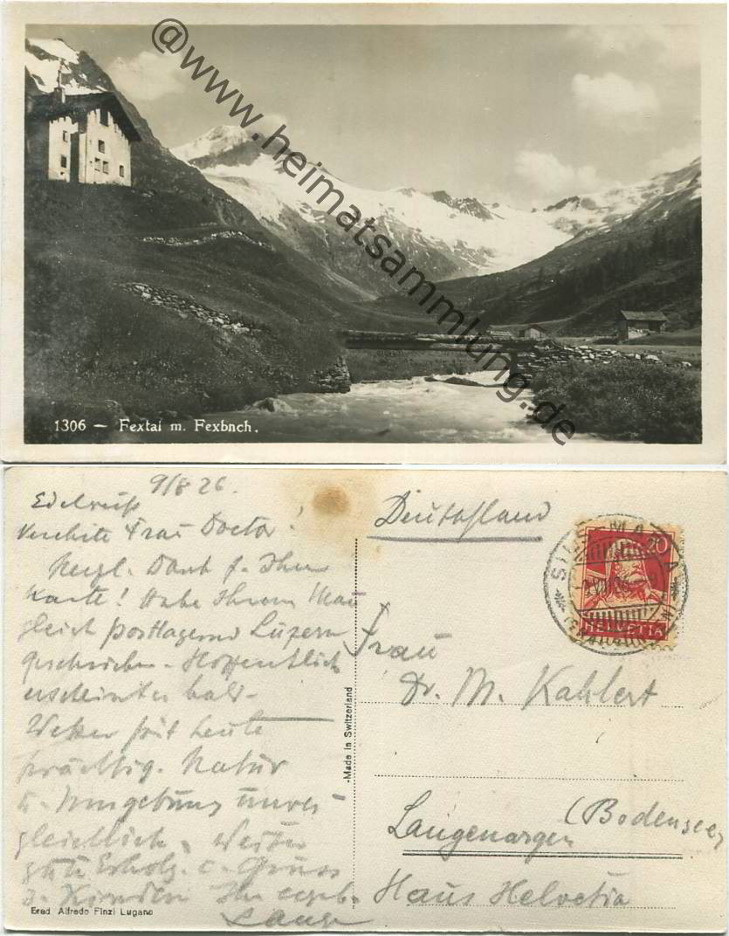 @www.heimatsammlung.de
1306 — Fextal m. Fexbach.
9/8 26.
Edelweiß
Verehrte Frau Doctor!
Herzl. Dank f. Ihre
Karte! Habe Ihrem Mann
gleich postlagernd Luzern
geschrieben - Hoffentlich
erscheint er bald -
Wetter seit heute
prächtig. Natur
u. Umgebung unver-
gleichlich. Weiter
gute Erholg. u. Gruss
d. Kindern Ihr ergeb.
Lange
Ered Alfredo Finzi Lugano
-Made in Switzerland
Deutschland
20
HELVETIA
Frau
Dr. M. Kahlert
Langenargen
(Bodensee)
Haus Helvetia